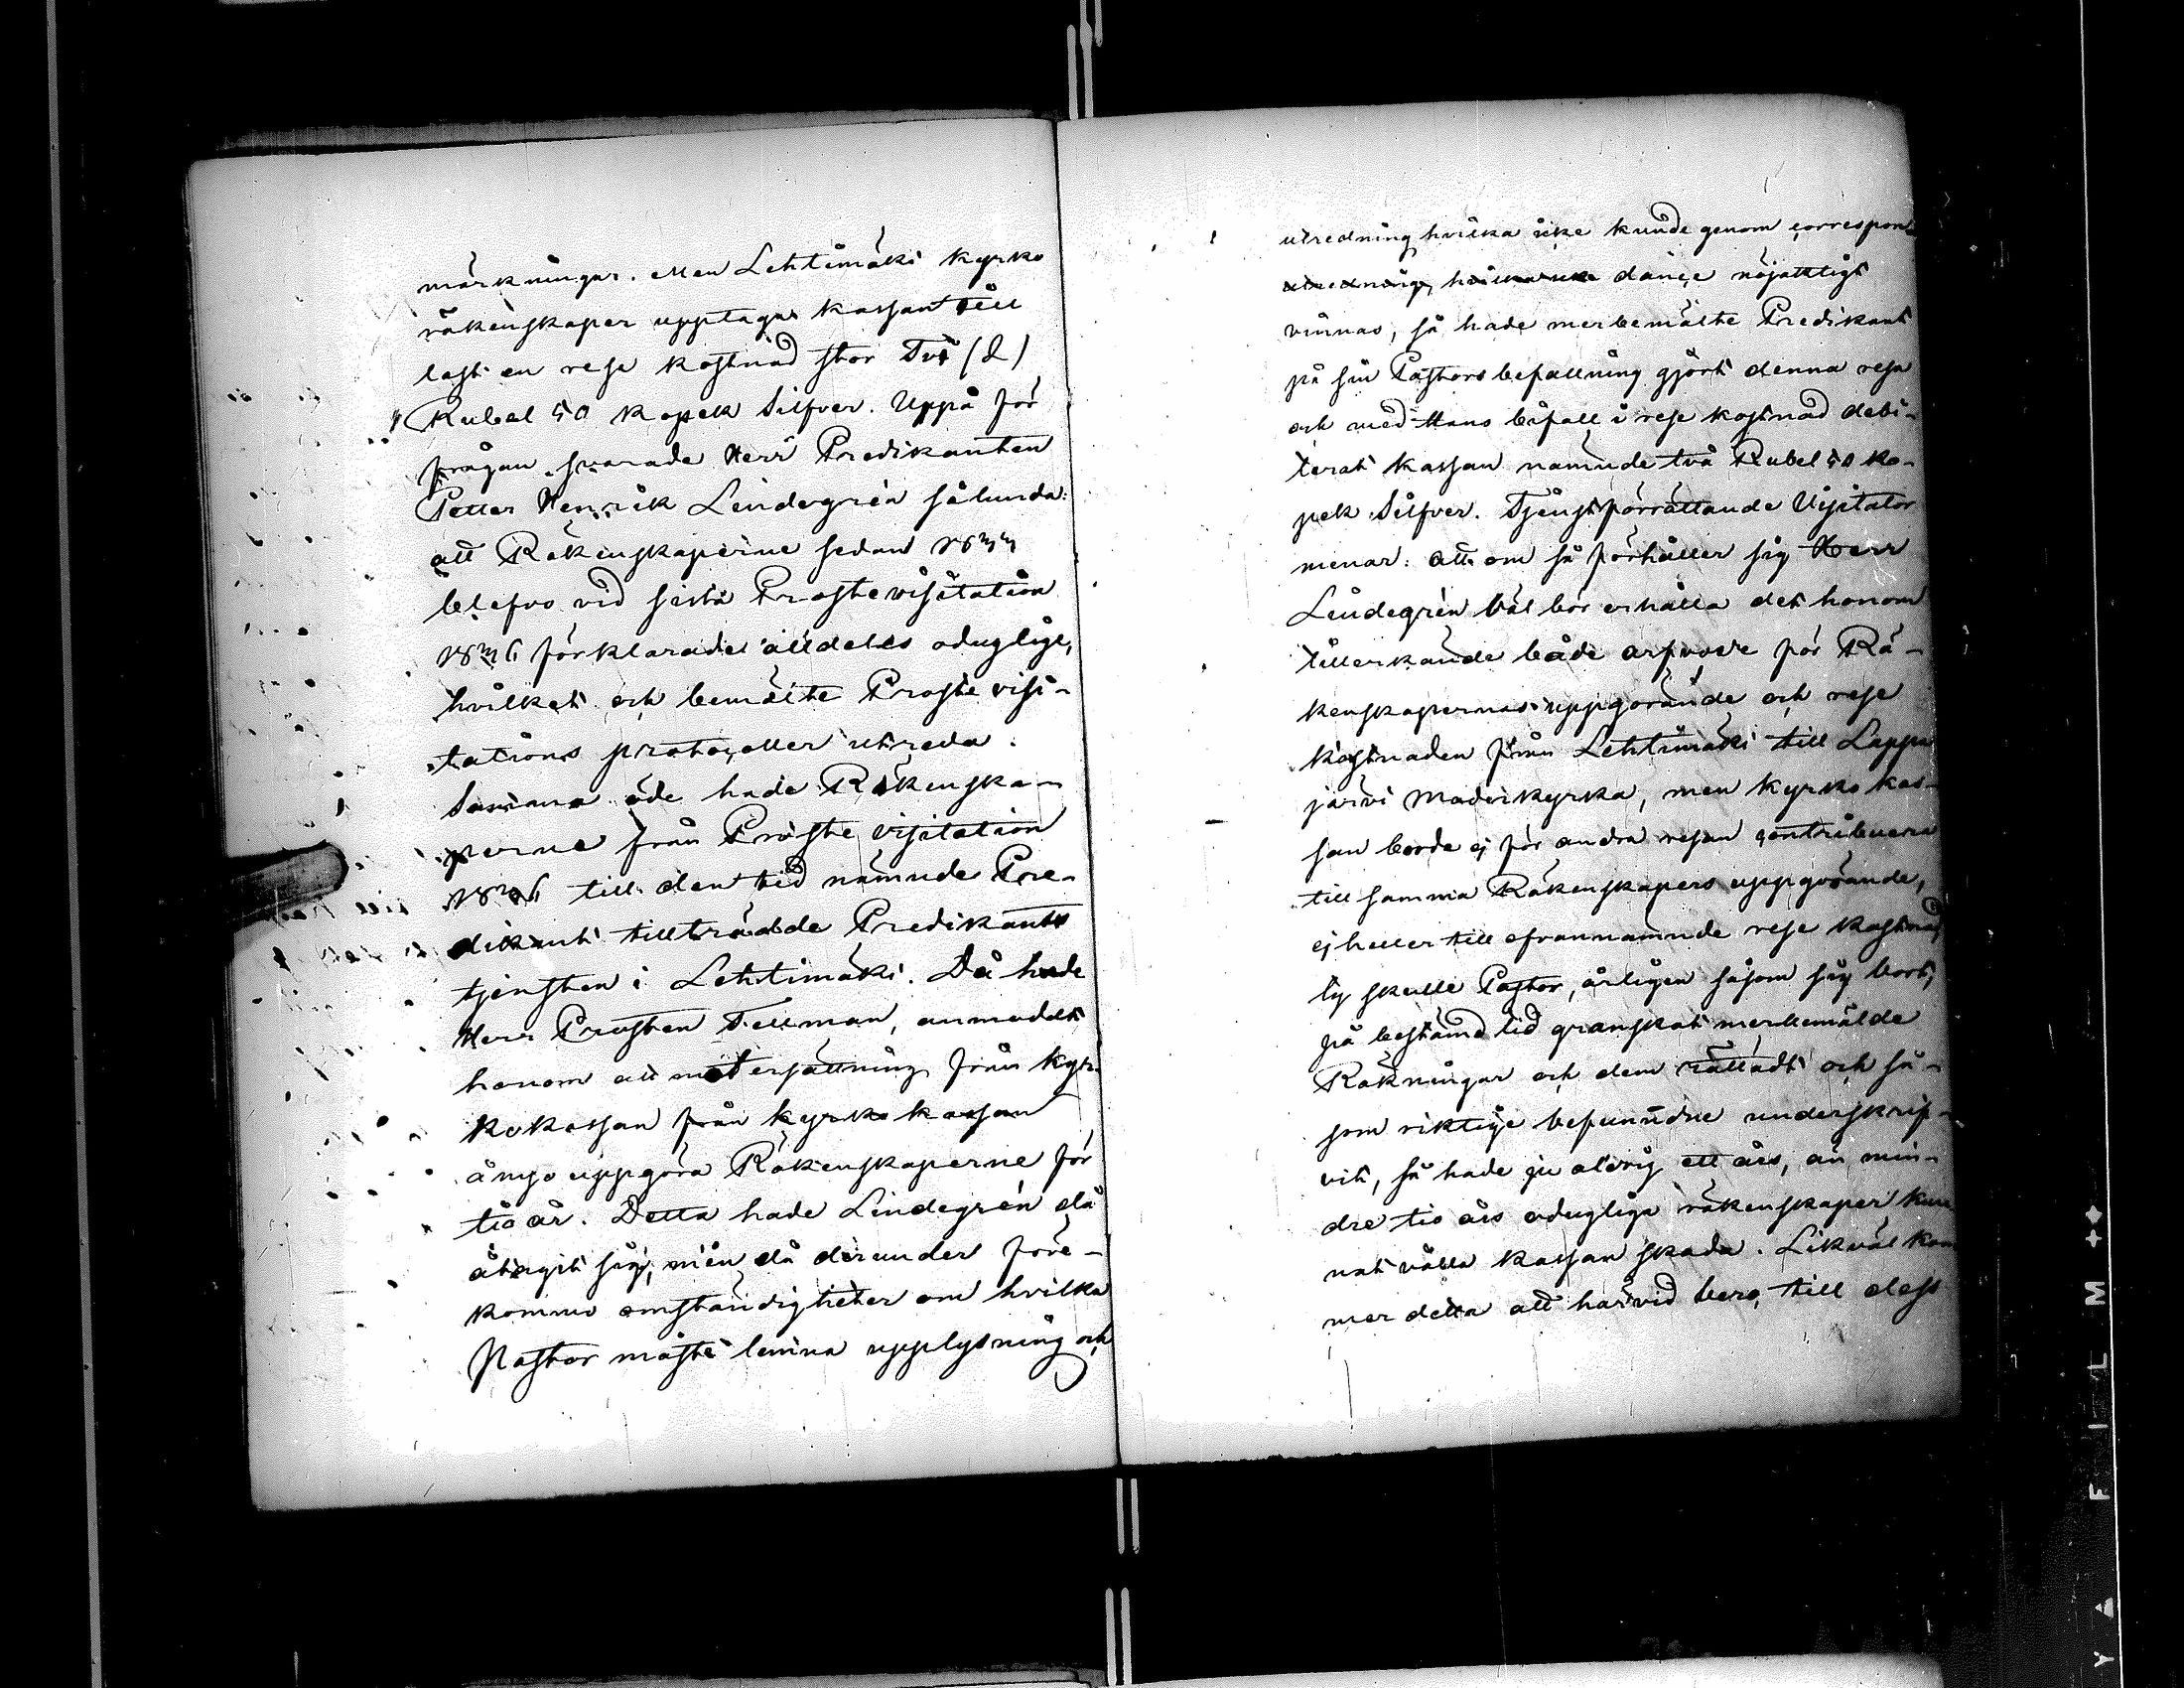 märkningar. Men Lehtimäki kyrko
räkenskaper upptaga kassan till
last en rese kostnad stor Två (2)
Rubel 50 kopek Silfver. Uppå för
frågan svarade Herr Predikanten
Petter Henrik Lindegrén sålunda:
att Räkenskaperne sedan 1833
blefvo vid sista Prostevisitation
1836 förklarade alldeles oduglige,
hvilket och bemälte Proste visi-
tations protocoller utreda.
Samma öde hade Räkenska-
perne från Proste visitation
1836 till den tid nämnde Pre-
dikant tillträdde Predikants
tjensten i Lehtimäki. Då hade
Herr Prosten Tellman, anmodat
honom att mot ersättning från kyr-
kokassan från kyrko kassan
ånyo uppgöra Räkenskaperne för
tio år. Detta hade Lindegrén då
åtagit sig, men då derunder före-
kommo omständigheter om hvilka
Pastor måste lemna upplysning och
utredning hvilka icke kunde genom correspon-
utredning, hvilka icke dance nöjaktligt
vinnas, så hade merbemälte Predikant
på sin Pastors befallning gjort denna resa
och med Hans bifall i rese kostnad debi-
terat kassan namnde två Rubel 50 ko-
pek Silfver. Tjenstförrättande Visitator
menar: att om så förhåller sig Herr
Lindegrén väl bör erhålla det honom
tillerkände både arfvode för Rä-
kenskapernas uppgörande och rese
kostnaden från Lehtimäki till Lappa
järvi Moderkyrka, men kyrko kas-
san borde ej för andra resan contribuera
till samma Räkenskapers uppgörande,
ej heller till ofvannämnde rese kostnad
ty skulle Pastor, årligen såsom sig bort,
på bestämd tid granskat merbemälde
Räkningar och dem rättadt och så-
som riktige befundne underskrif-
vit, så hade ju aldrig ett års, än min-
dre tio års odugliga räkenskaper kun
nat välla kassan skada. Likväl kom
mer detta att härvid bero, till dess